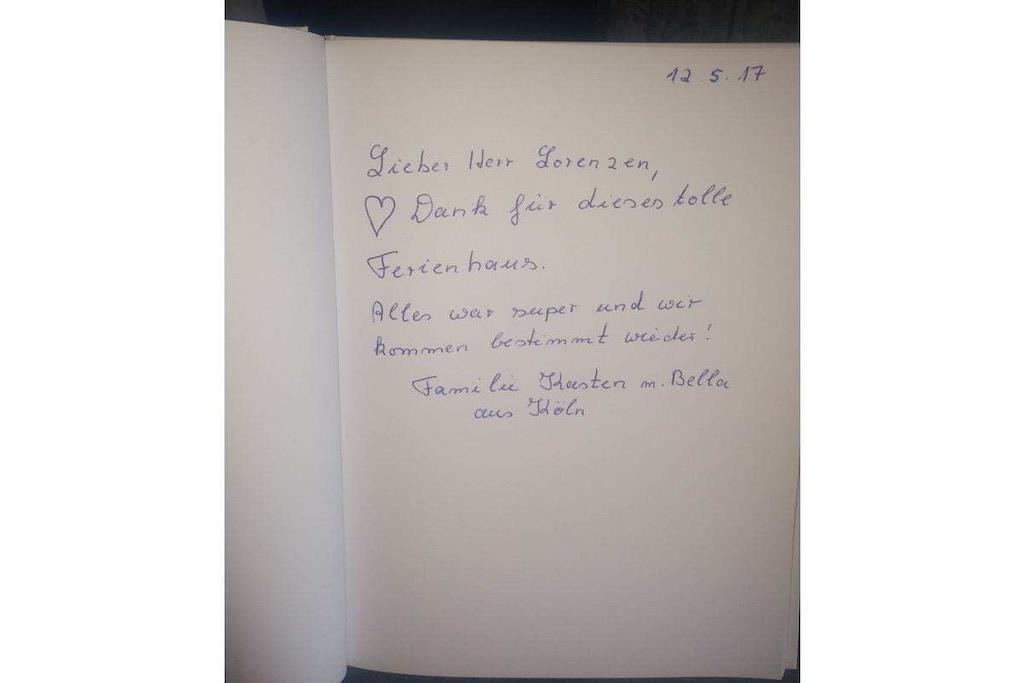 12.5.17
Lieber Herr Lorenzen,
♡ Dank für dieses tolle
Ferienhaus.
Alles war super und wir
kommen bestimmt wieder!
Familie Kasten m. Bella
aus Köln